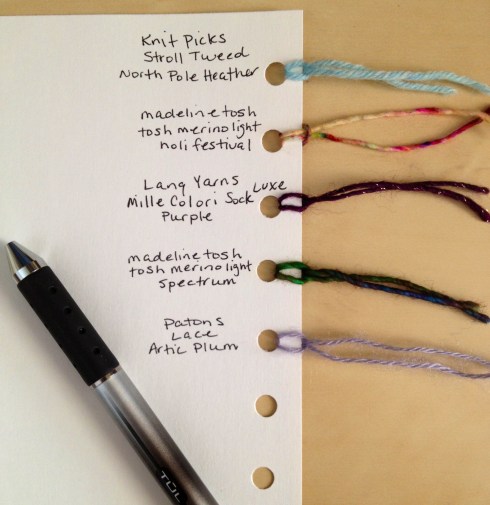 Knit Picks
Stroll Tweed
North Pole Heather
madelinetosh
tosh merino light
holi festival
Lang Yarns
Mille Colori Sock Luxe
Purple
madelinetosh
tosh merino light
spectrum
Patons
Lace
Artic Plum
TUL